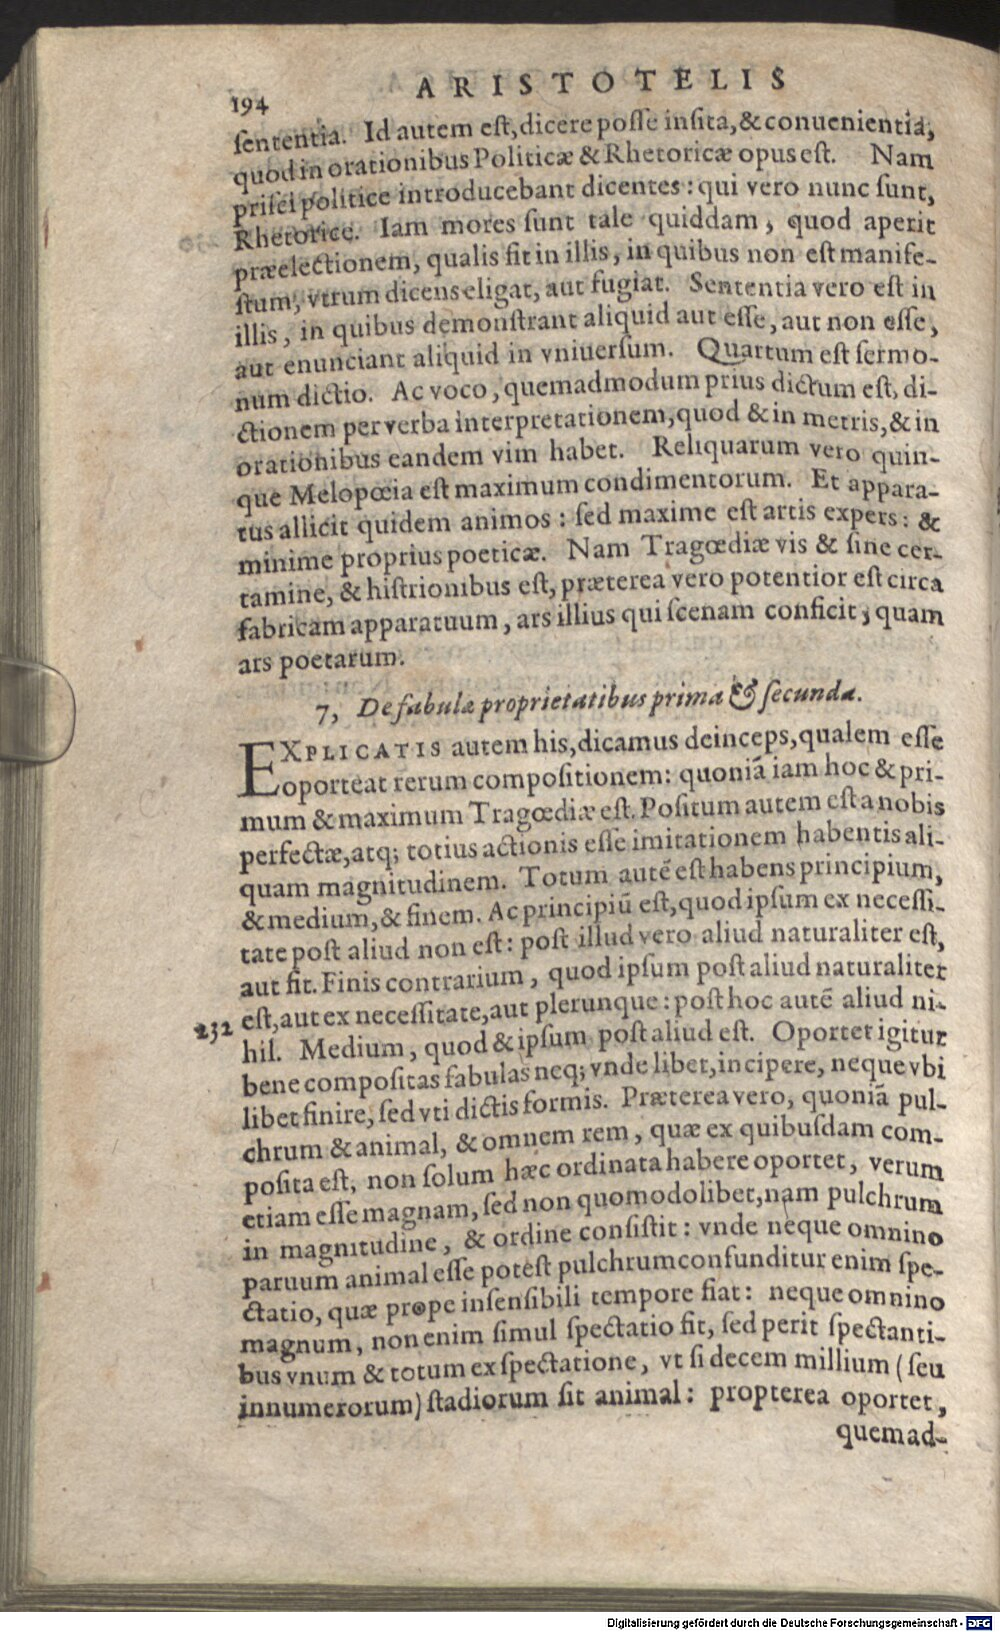 194
ARISTOTELIS
sententia. Id autem est, dicere posse insita, & conuenientia,
quod in orationibus Politicæ & Rhetoricæ opus est. Nam
prisci politice introducebant dicentes: qui vero nunc sunt,
Rhetorice. Iam mores sunt tale quiddam, quod aperit
præelectionem, qualis sit in illis, in quibus non est manife-
stum, vtrum dicens eligat, aut fugiat. Sententia vero est in
illis, in quibus demonstrant aliquid aut esse, aut non esse,
aut enunciant aliquid in vniuersum. Quartum est sermo-
num dictio. Ac voco, quemadmodum prius dictum est, di-
ctionem per verba interpretationem, quod & in metris, & in
orationibus eandem vim habet. Reliquarum vero quin-
que Melopœia est maximum condimentorum. Et appara-
tus allicit quidem animos: sed maxime est artis expers: &
minime proprius poeticæ. Nam Tragœdiæ vis & sine cer-
tamine, & histrionibus est, præterea vero potentior est circa
fabricam apparatuum, ars illius qui scenam conficit; quam
ars poetarum.
7, De fabulæ proprietatibus prima & secunda.
EXPLICATIS autem his, dicamus deinceps, qualem esse
oporteat rerum compositionem: quoniã iam hoc & pri-
mum & maximum Tragœdiæ est. Positum autem est a nobis
perfectæ, atq; totius actionis esse imitationem habentis ali-
quam magnitudinem. Totum autẽ est habens principium,
& medium, & finem. Ac principiũ est, quod ipsum ex necessi-
tate post aliud non est: post illud vero aliud naturaliter est,
aut fit. Finis contrarium, quod ipsum post aliud naturaliter
est, aut ex necessitate, aut plerunque: post hoc autẽ aliud ni-
232
hil. Medium, quod & ipsum post aliud est. Oportet igitur
bene compositas fabulas neq; vnde libet, incipere, neque vbi
libet finire, sed vti dictis formis. Præterea vero, quoniã pul-
chrum & animal, & omnem rem, quæ ex quibusdam com-
posita est, non solum hæc ordinata habere oportet, verum
etiam esse magnam, sed non quomodolibet, nam pulchrum
in magnitudine, & ordine consistit: vnde neque omnino
paruum animal esse potest pulchrum confunditur enim spe-
ctatio, quæ prope insensibili tempore fiat: neque omnino
magnum, non enim simul spectatio fit, sed perit spectanti-
bus vnum & totum ex spectatione, vt si decem millium (seu
innumerorum) stadiorum sit animal: propterea oportet,
quemad-
Digitalisierung gefördert durch die Deutsche Forschungsgemeinschaft - DFG